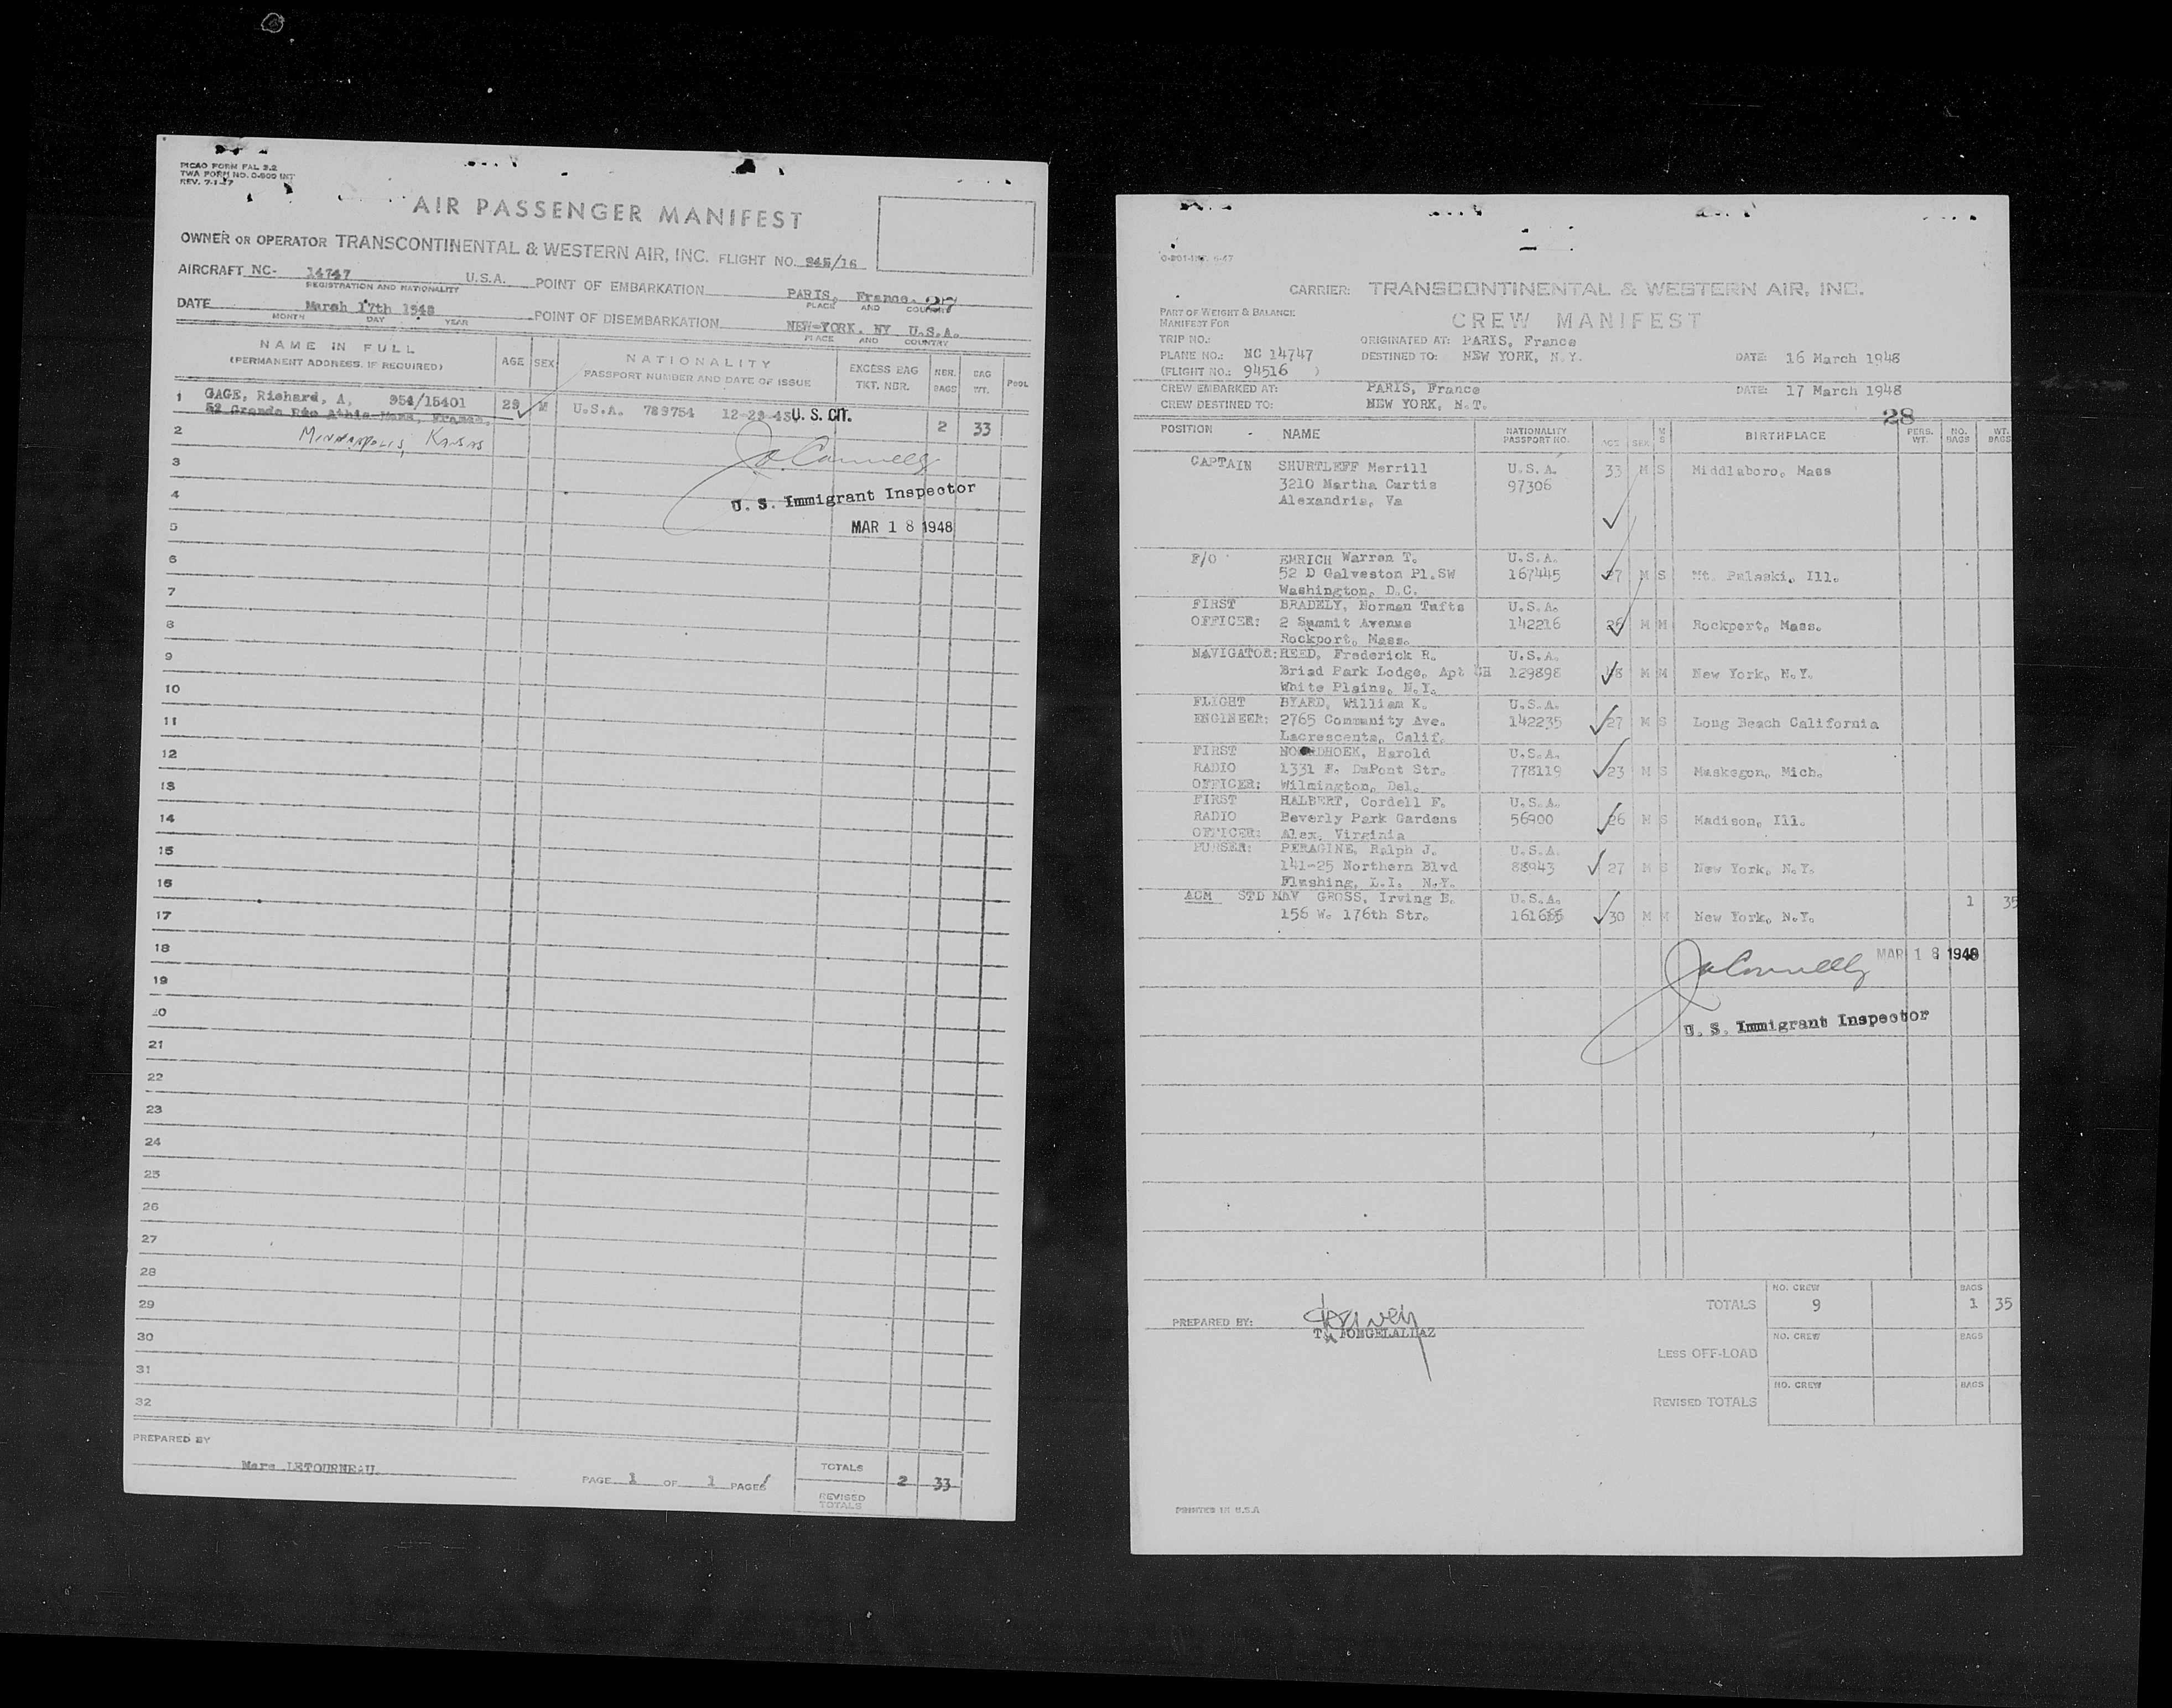 PICAO FORM FAL 3.2
TWA FORM NO. 0-800 INT
REV. 7-1-47
AIR PASSENGER MANIFEST
OWNER OR OPERATOR TRANSCONTINENTAL & WESTERN AIR, INC. FLIGHT NO. 945/16
AIRCRAFT NC- 14747 U.S.A. POINT OF EMBARKATION PARIS, France. 27
REGISTRATION AND NATIONALITY PLACE AND COUNTRY
DATE March 17th 1948 POINT OF DISEMBARKATION NEW-YORK, NY U.S.A.
MONTH DAY YEAR PLACE AND COUNTRY
NAME IN FULL
(PERMANENT ADDRESS, IF REQUIRED) AGE SEX NATIONALITY
PASSPORT NUMBER AND DATE OF ISSUE EXCESS BAG
TKT. NBR. NBR.
BAGS BAG
WT. POOL
1 GAGE, Richard, A, 954/15401 29 M U.S.A. 789754 12-29-43 U.S. CIT.
52 Grande Rue Athis-Mons, France. 2 33
2 Minneapolis, Kansas
3 JaConnelly
4 U. S. Immigrant Inspector
5 MAR 18 1948
6
7
8
9
10
11
12
13
14
15
16
17
18
19
20
21
22
23
24
25
26
27
28
29
30
31
32
PREPARED BY
Marc LETOURNEAU
PAGE 1 OF 1 PAGES
TOTALS 2 33
REVISED
TOTALS
0-801-INT. 6-47
CARRIER: TRANSCONTINENTAL & WESTERN AIR, INC.
PART OF WEIGHT & BALANCE
MANIFEST FOR
CREW MANIFEST
TRIP NO.: ORIGINATED AT: PARIS, France
PLANE NO.: NC 14747 DESTINED TO: NEW YORK, N.Y. DATE: 16 March 1948
(FLIGHT NO.: 94516 )
CREW EMBARKED AT: PARIS, France DATE: 17 March 1948
CREW DESTINED TO: NEW YORK, N.Y.
28
POSITION - NAME NATIONALITY
PASSPORT NO. AGE SEX M
S BIRTHPLACE PERS.
WT. NO.
BAGS WT.
BAGS
CAPTAIN SHURTLEFF Merrill U.S.A. 33 M S Middlaboro, Mass
3210 Martha Curtis 97306
Alexandria, Va
F/O EMRICH Warren T. U.S.A.
52 D Galveston Pl.SW 167445 27 M S Mt. Pulaski, Ill.
Washington, D.C.
FIRST BRADELY, Norman Tufts U.S.A.
OFFICER: 2 Summit Avenue 142216 26 M M Rockport, Mass.
Rockport, Mass.
NAVIGATOR: REED, Frederick R. U.S.A.
Briad Park Lodge, Apt 129898 M M New York, N.Y.
White Plains, N.Y.
FLIGHT BYARD, William K. U.S.A.
ENGINEER: 2765 Community Ave. 142235 27 M S Long Beach California
Lacrescenta, Calif.
FIRST NOORDHOEK, Harold U.S.A.
RADIO 1331 F. DuPont Str. 778119 23 M S Muskegon, Mich.
OFFICER: Wilmington, Del.
FIRST HALBERT, Cordell F. U.S.A.
RADIO Beverly Park Gardens 56900 26 M S Madison, Ill.
OFFICER: Alex. Virginia
PURSER: PERAGINE, Ralph J. U.S.A.
141-25 Northern Blvd 88943 27 M S New York, N.Y.
Flushing, L.I. N.Y.
ACM STD NAV GROSS, Irving B. U.S.A. 1 35
156 W. 176th Str. 30 M M New York, N.Y.
JaConnelly MAR 18 1948
U. S. Immigrant Inspector
NO. CREW BAGS
TOTALS 9 1 35
PREPARED BY:
T. FONGELALLAZ
NO. CREW BAGS
LESS OFF-LOAD
NO. CREW BAGS
REVISED TOTALS
PRINTED IN U.S.A